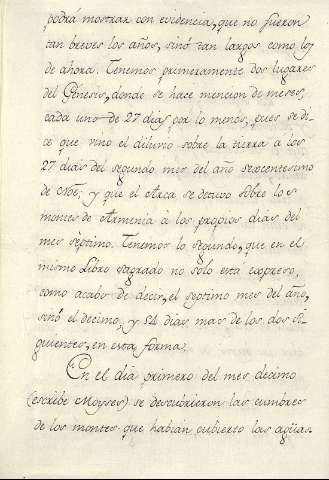 podrá mostrar con evidencia, que no fueron
tan breves los años, sinó tan largos como los
de ahora. Tenemos primeramente dos lugares
del Génesis, donde se hace mencion de meses,
cada uno de 27 dias por lo menos, pues se di-
ce que vino el diluvio sobre la tierra á los
27 dias del segundo mes del año sexcentesimo
de Noé, y que el Arca se detuvo sobre los
montes de Armenia á los propios dias del
mes séptimo. Tenemos lo segundo, que en el
mismo Libro sagrado no solo está expreso,
como acabo de decir, el septimo mes del año,
sinó el decimo, y 54 dias mas de los dos si-
guientes, en esta forma.
En el dia primero del mes decimo
(escribe Moyses) se descubrieron las cumbres
de los montes que habian cubierto las agüas.